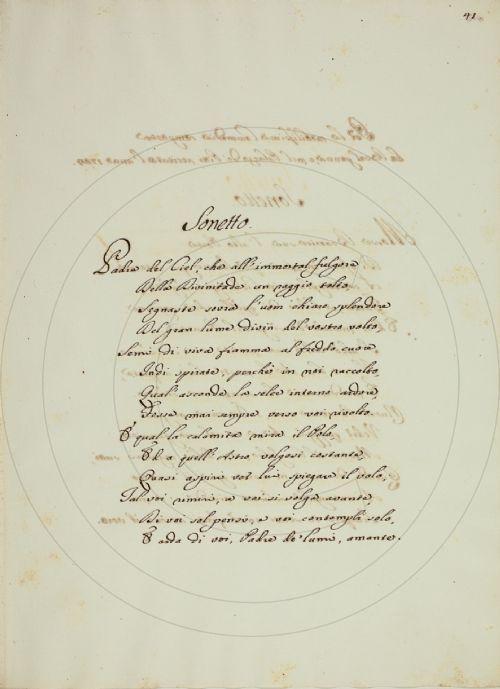 41
Sonetto.
Padre del Ciel, che all'immortal fulgore
Della Divinitade un raggio tolto,
Segnaste sovra l'uom chiaro splendore
Del gran lume divin del vostro volto,
Seme di viva fiamma al freddo cuore
Indi spirate, perchè in noi raccolto
Qual' asconde la selce interno ardore,
Fosse mai sempre verso voi rivolto.
E qual la calamita mira il Polo,
Ed a quell' Astro volgesi costante,
Quasi aspiri ver lui spiegare il volo,
Tal voi rimiri, a voi si volga avante
Di voi sol pensi, e voi contempli solo,
E arda di voi, Padre de' lumi, amante.